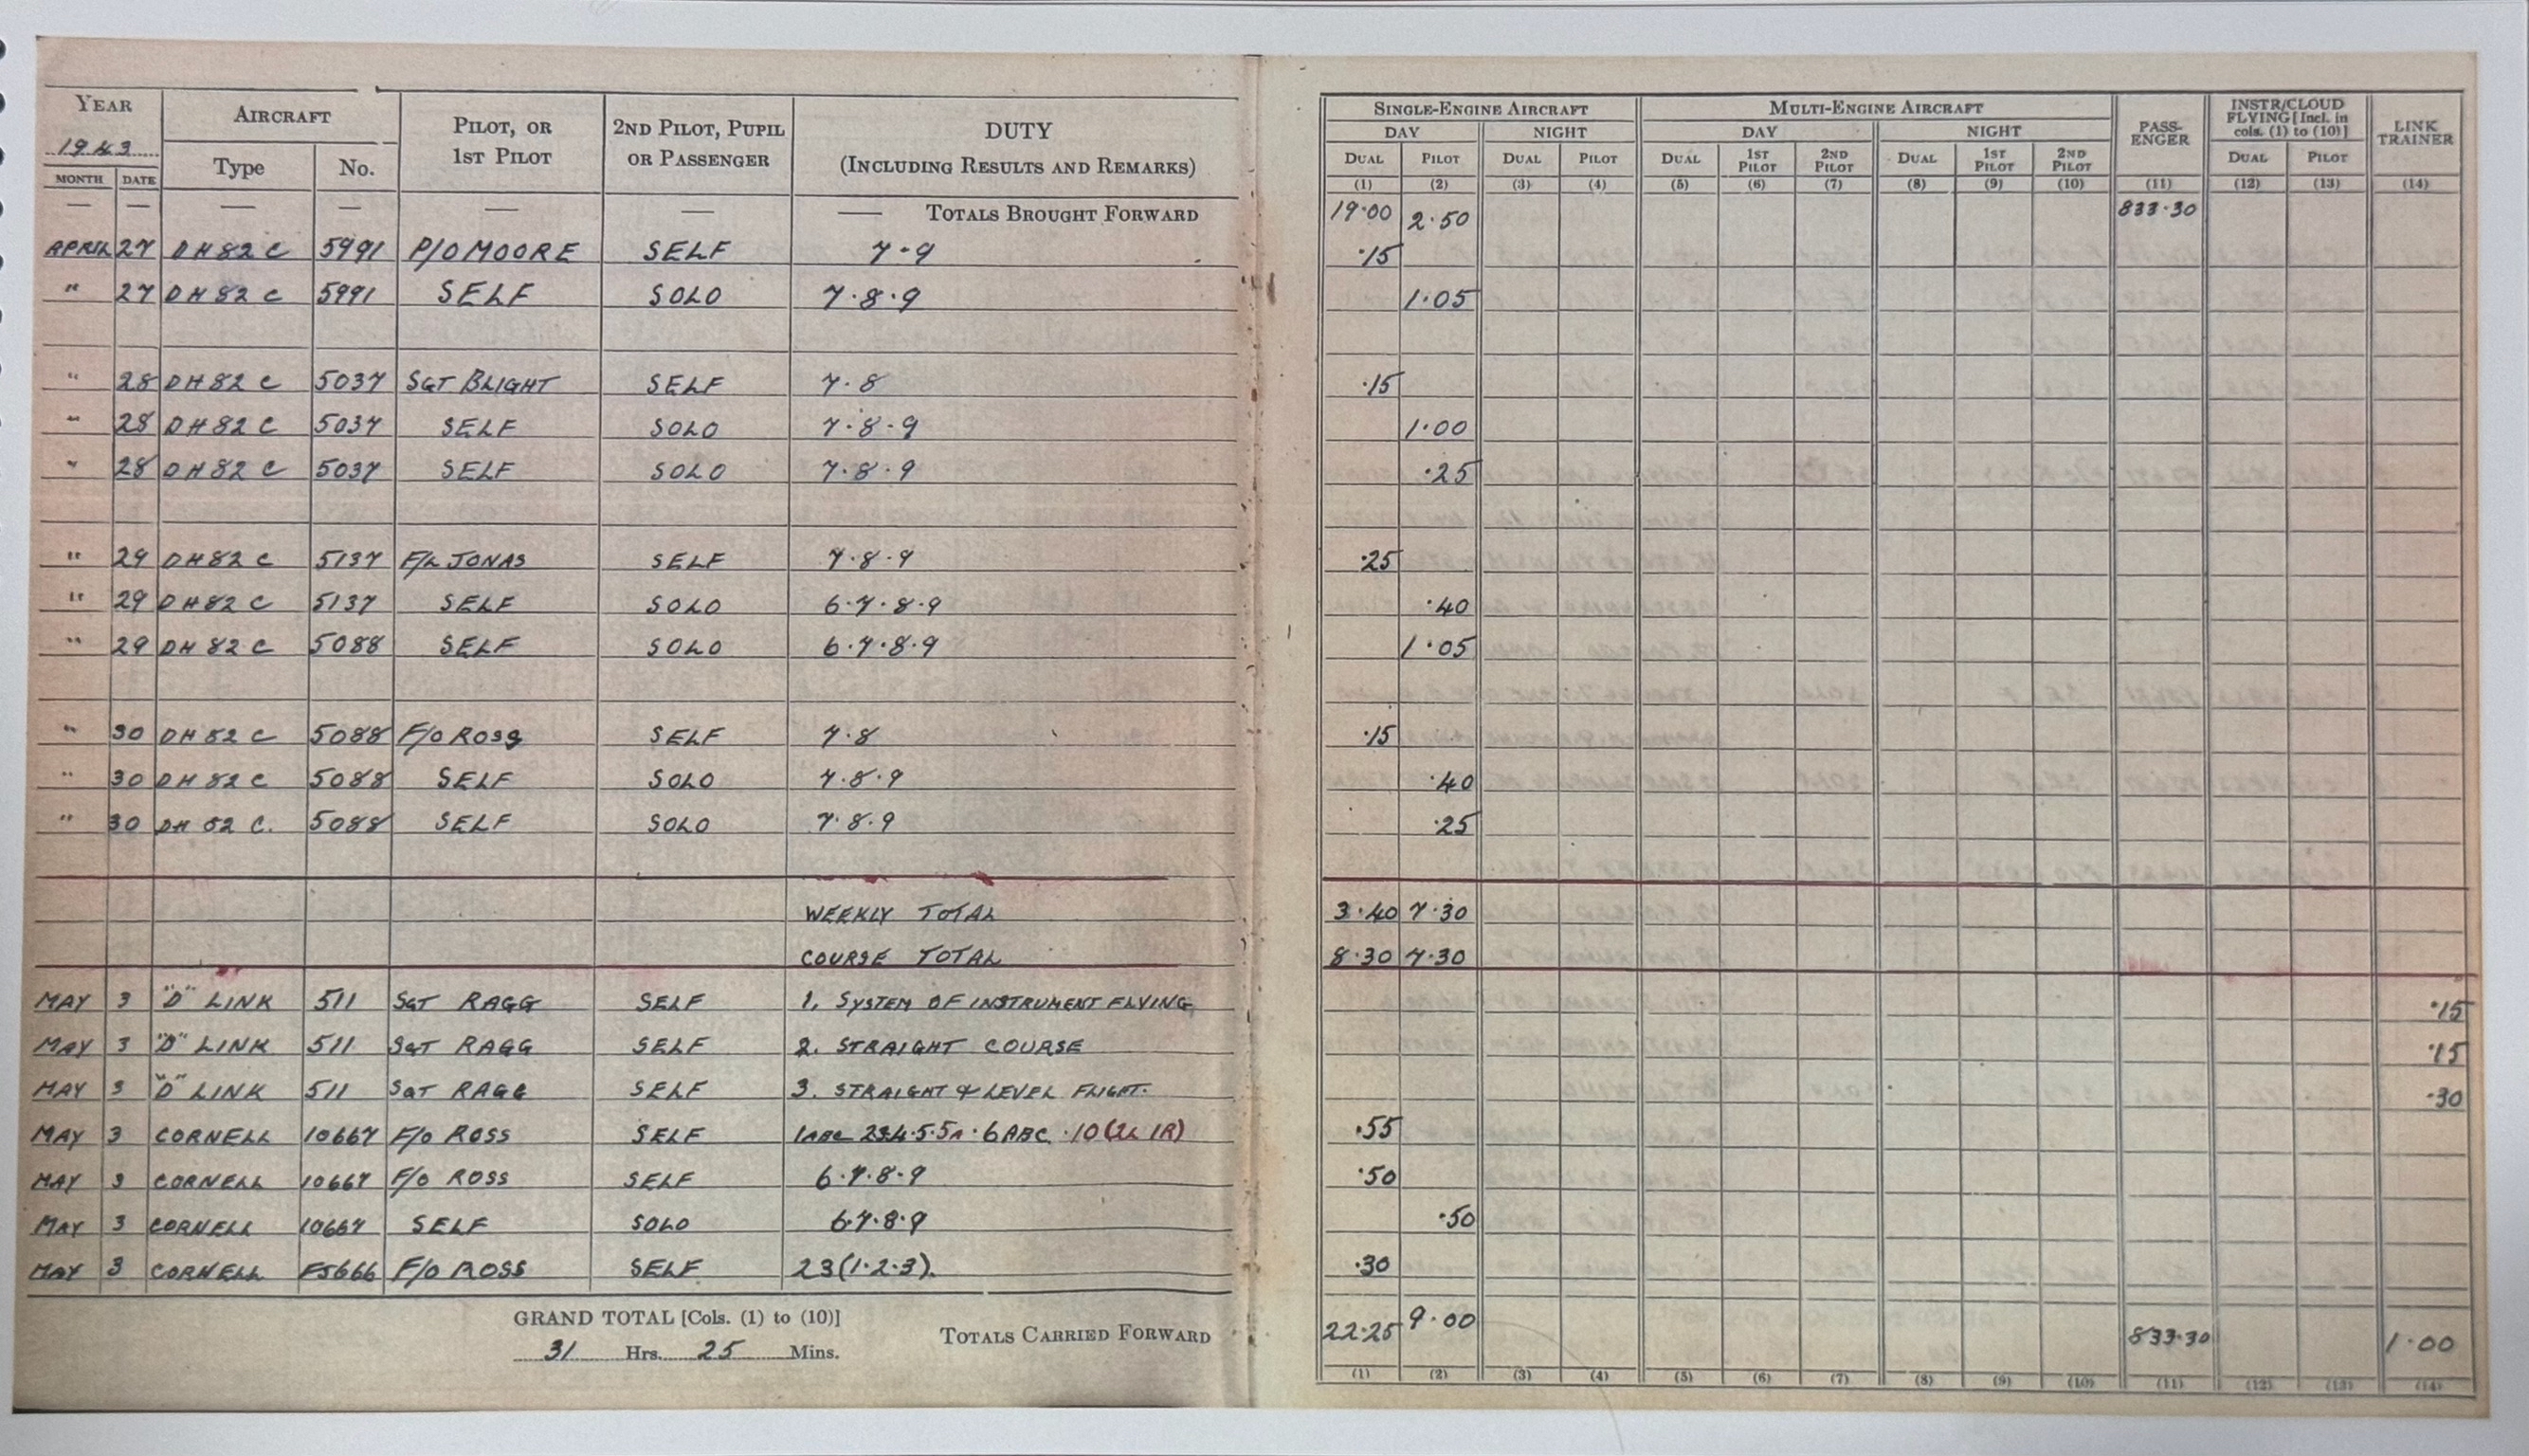 YEAR AIRCRAFT PILOT, OR 1ST PILOT 2ND PILOT, PUPIL OR PASSENGER DUTY (INCLUDING RESULTS AND REMARKS) SINGLE-ENGINE AIRCRAFT MULTI-ENGINE AIRCRAFT PASS-ENGER INSTR/CLOUD FLYING [Incl. in cols. (1) to (10)] LINK TRAINER
1943 Type No. DAY NIGHT DAY NIGHT
MONTH DATE DUAL PILOT DUAL PILOT DUAL 1ST PILOT 2ND PILOT DUAL 1ST PILOT 2ND PILOT DUAL PILOT
(1) (2) (3) (4) (5) (6) (7) (8) (9) (10) (11) (12) (13) (14)
— — — — — — — TOTALS BROUGHT FORWARD 19.00 2.50 833.30
APRIL 27 DH82 C 5991 P/O MOORE SELF 7-9 .15
" 27 DH 82 C 5991 SELF SOLO 7.8.9 1.05
" 28 DH 82 C 5037 SGT BLIGHT SELF 7.8 .15
" 28 DH 82 C 5037 SELF SOLO 7.8.9 1.00
" 28 DH 82 C 5037 SELF SOLO 7.8.9 .25
" 29 DH 82 C 5137 F/L JONAS SELF 7.8.9 .25
" 29 DH 82 C 5137 SELF SOLO 6.7.8.9 .40
" 29 DH 82 C 5088 SELF SOLO 6.7.8.9 1.05
" 30 DH 82 C 5088 F/O ROSS SELF 7.8 .15
" 30 DH 82 C 5088 SELF SOLO 7.8.9 .40
" 30 DH 82 C. 5088 SELF SOLO 7.8.9 .25
WEEKLY TOTAL 3.40 7.30
COURSE TOTAL 8.30 7.30
MAY 3 "D" LINK 511 SGT RAGG SELF 1. SYSTEM OF INSTRUMENT FLYING .15
MAY 3 "D" LINK 511 SGT RAGG SELF 2. STRAIGHT COURSE .15
MAY 3 "D" LINK 511 SGT RAGG SELF 3. STRAIGHT & LEVEL FLIGHT. .30
MAY 3 CORNELL 10667 F/O ROSS SELF 1ABC 234.5.5A.6ABC.10(2L 1R) .55
MAY 3 CORNELL 10667 F/O ROSS SELF 6.7.8.9 .50
MAY 3 CORNELL 10667 SELF SOLO 6.7.8.9 .50
MAY 3 CORNELL FJ666 F/O ROSS SELF 23(1.2.3). .30
GRAND TOTAL [Cols. (1) to (10)]
31 Hrs. 25 Mins.
TOTALS CARRIED FORWARD 22.25 9.00 833.30 1.00
(1) (2) (3) (4) (5) (6) (7) (8) (9) (10) (11) (12) (13) (14)